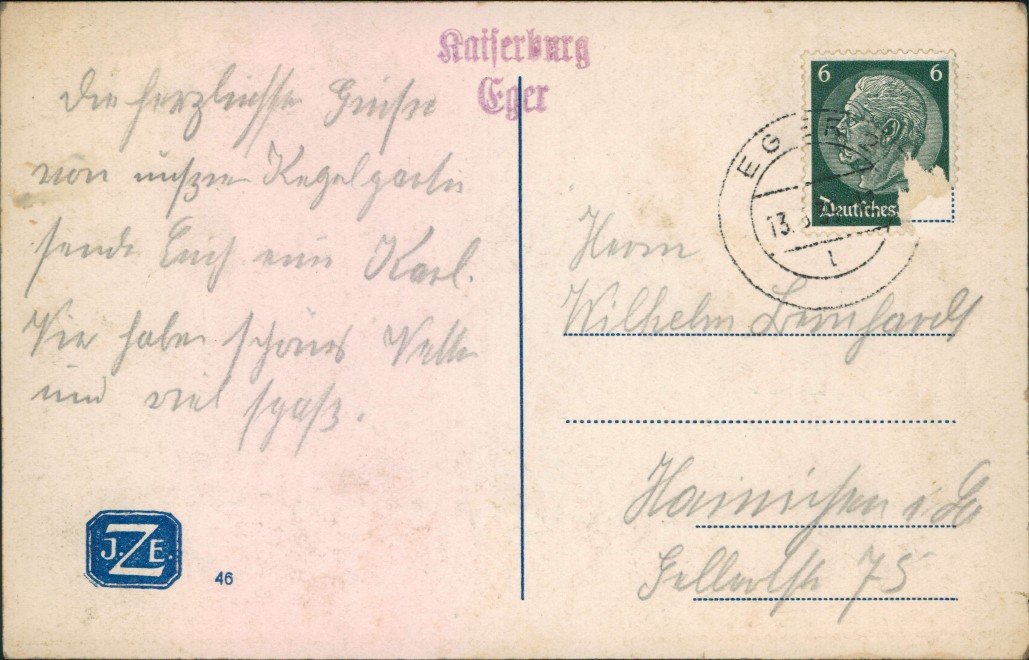 Kaiserburg
Eger
Die herzlichsten Grüße
von unserer Kegelpartie
sende Euch euer Karl.
Wir haben schönes Wetter
und viel Spaß.
6 6
Deutsches
EGER
13.
1
Herrn
Wilhelm Leonhardt
Hainichen i. Sa
Gellertstr 75
J.Z.E.
46